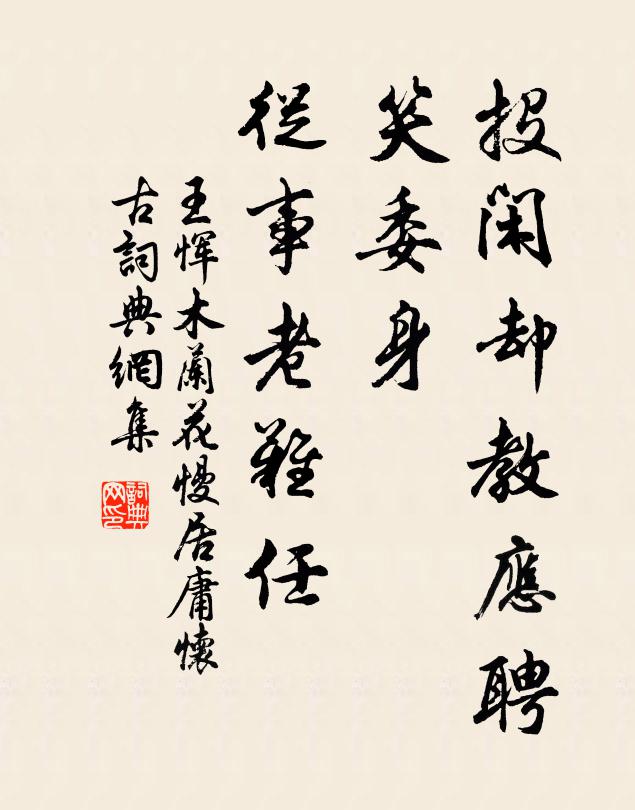 投閑却教應聘
笑委身
從事老難任
王惲木蘭花慢居庸懷
古詞典網集
詞典
网印